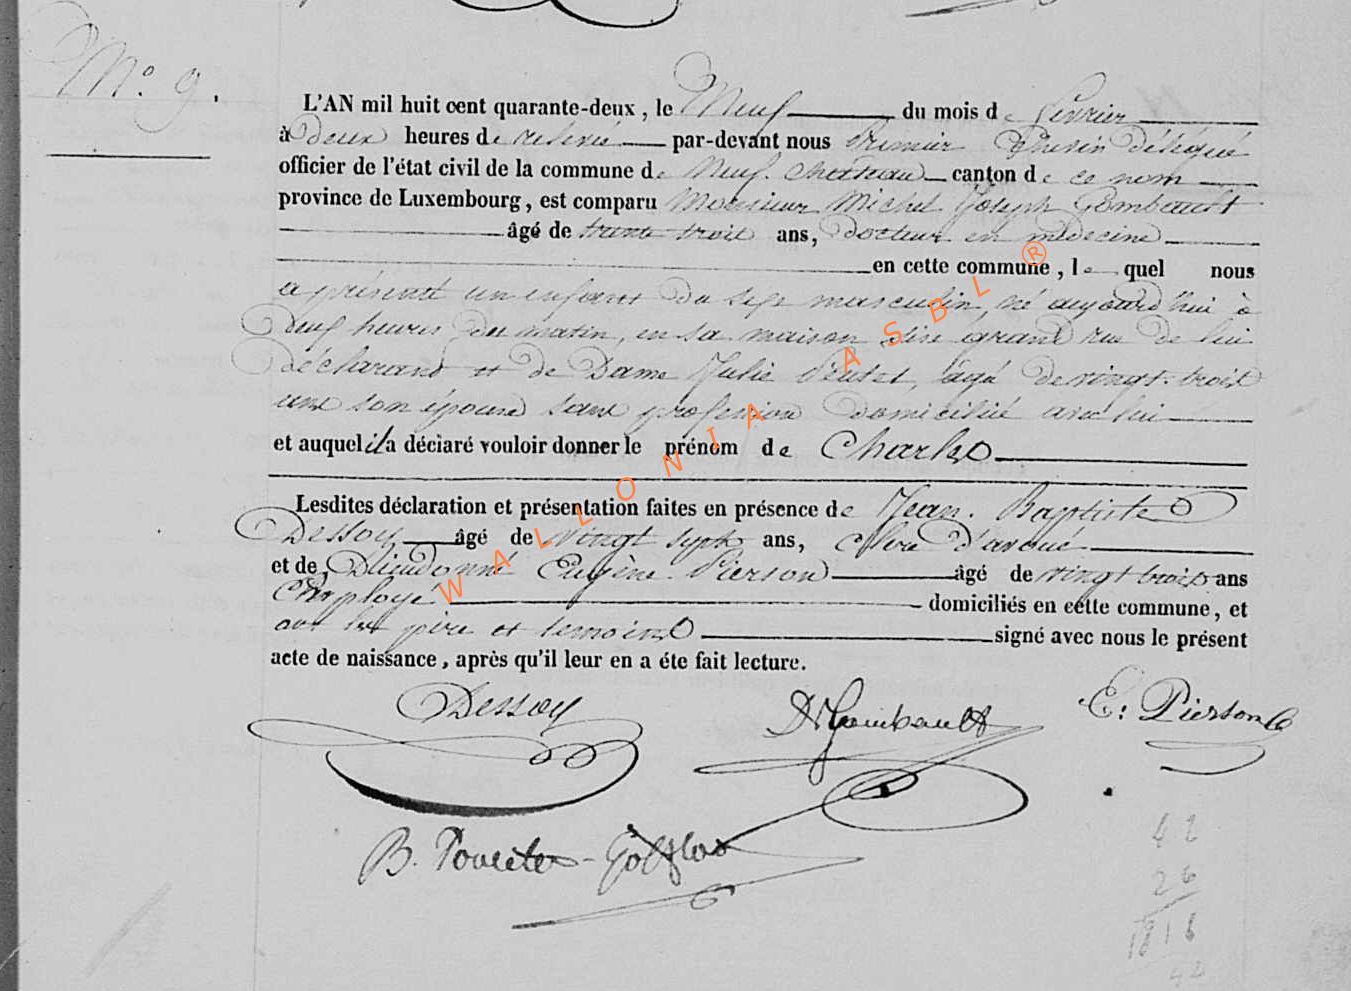 N.° 9.
L'AN mil huit cent quarante-deux, le Neuf du mois de février
à deux heures de relevée par-devant nous Premier Echevin délégué
officier de l'état civil de la commune de Neuf-Château canton de ce nom
province de Luxembourg, est comparu Monsieur Michel Joseph Gombault
âgé de trente trois ans, docteur en médecine
en cette commune, lequel nous
a présenté un enfant du sexe masculin, né aujourd'hui à
neuf heures du matin, en sa maison sise grand rue de lui
déclarant et de Dame Julie âgé de vingt-trois
ans son épouse sans profession domicilié avec lui
et auquel il a déclaré vouloir donner le prénom de Charles
Lesdites déclaration et présentation faites en présence de Jean-Baptiste
Dessoy âgé de vingt sept ans, clerc d'avoué
et de Dieudonné Eugène Pierson âgé de vingt trois ans
Employé domiciliés en cette commune, et
ont les père et témoins signé avec nous le présent
acte de naissance, après qu'il leur en a été fait lecture.
Dessoy Dr Gombault E. Pierson
B.
42
26
1816
42
WALLONIA ASBL ®